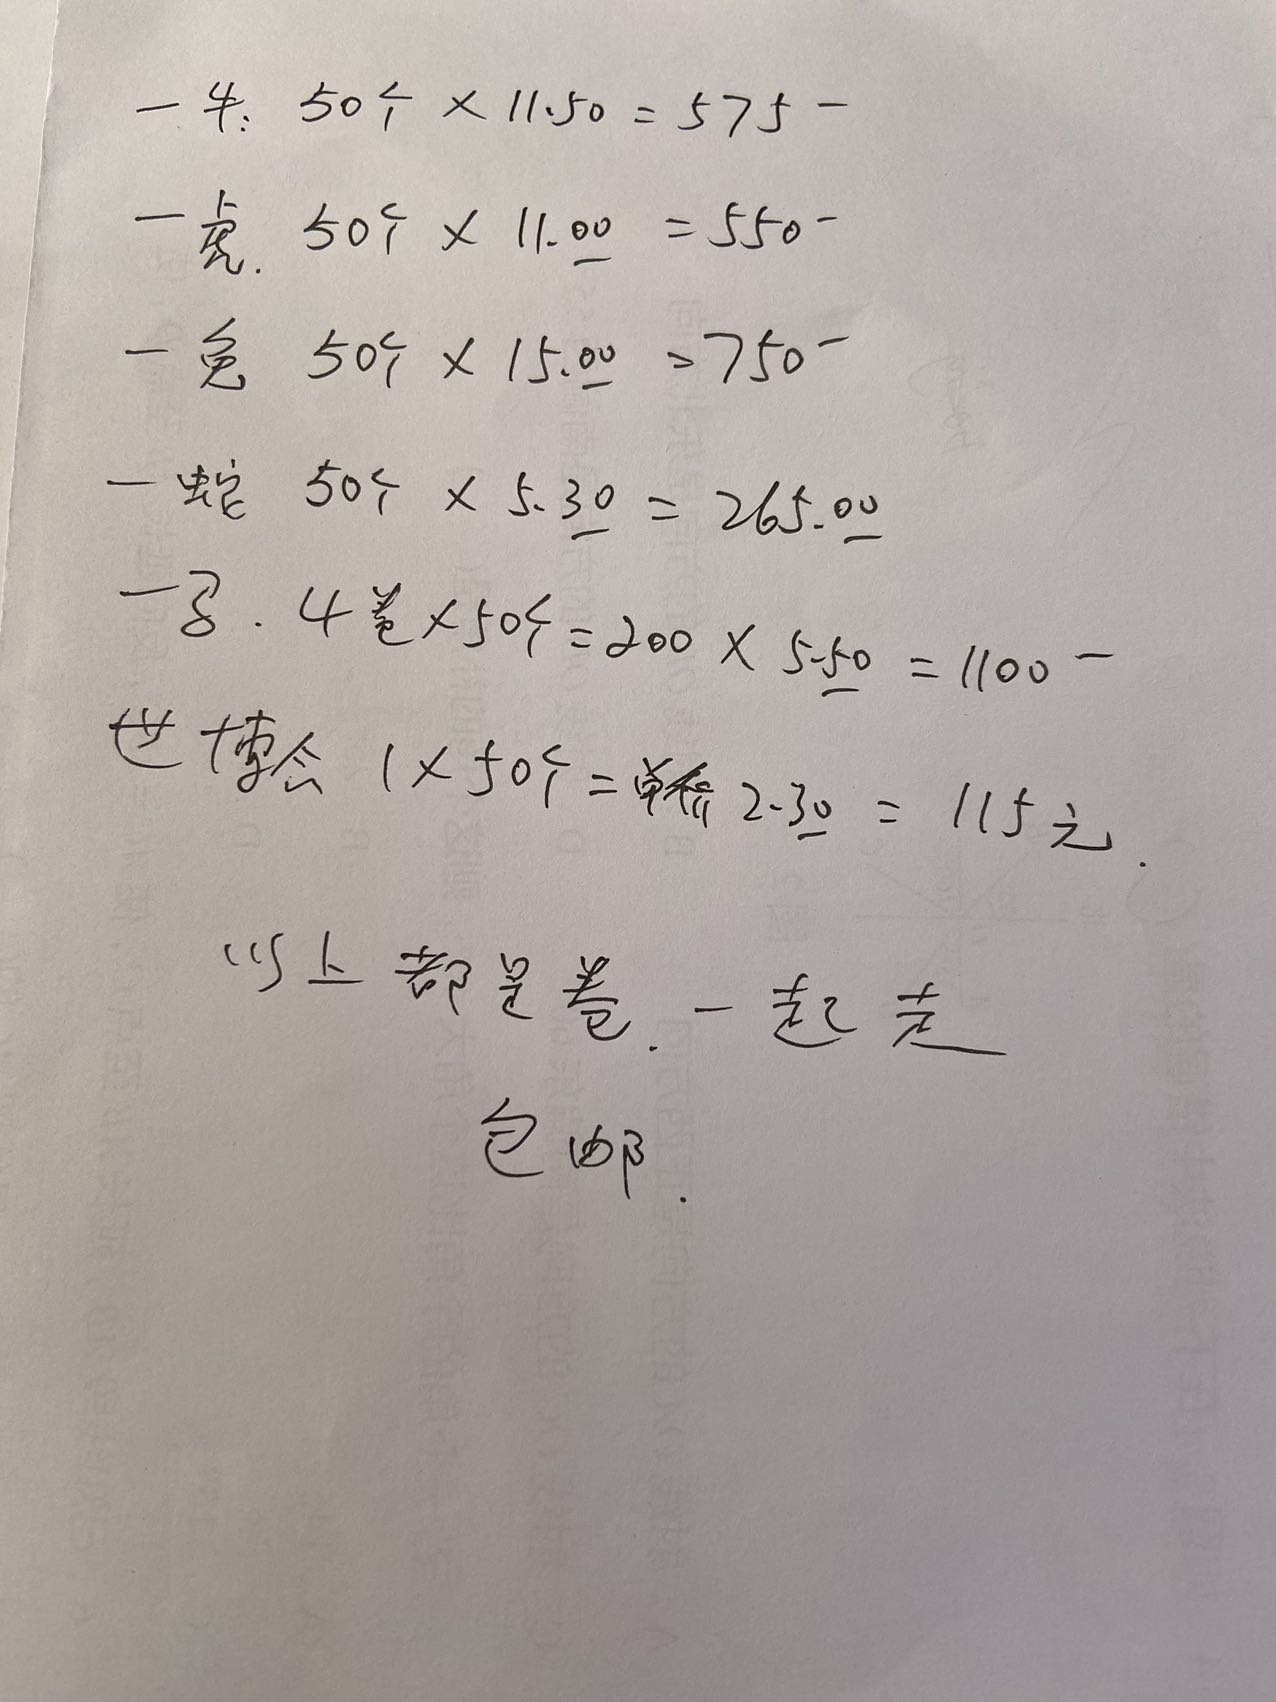 一牛: 50个 × 11.50 = 575 一
一虎. 50个 × 11.00 = 550 一
一兔 50个 × 15.00 = 750 一
一蛇 50个 × 5.30 = 265.00
一马. 4卷×50个 = 200 × 5.50 = 1100 一
世博会 1×50个 = 单价 2.30 = 115元.
以上都是卷. 一起走
包邮.